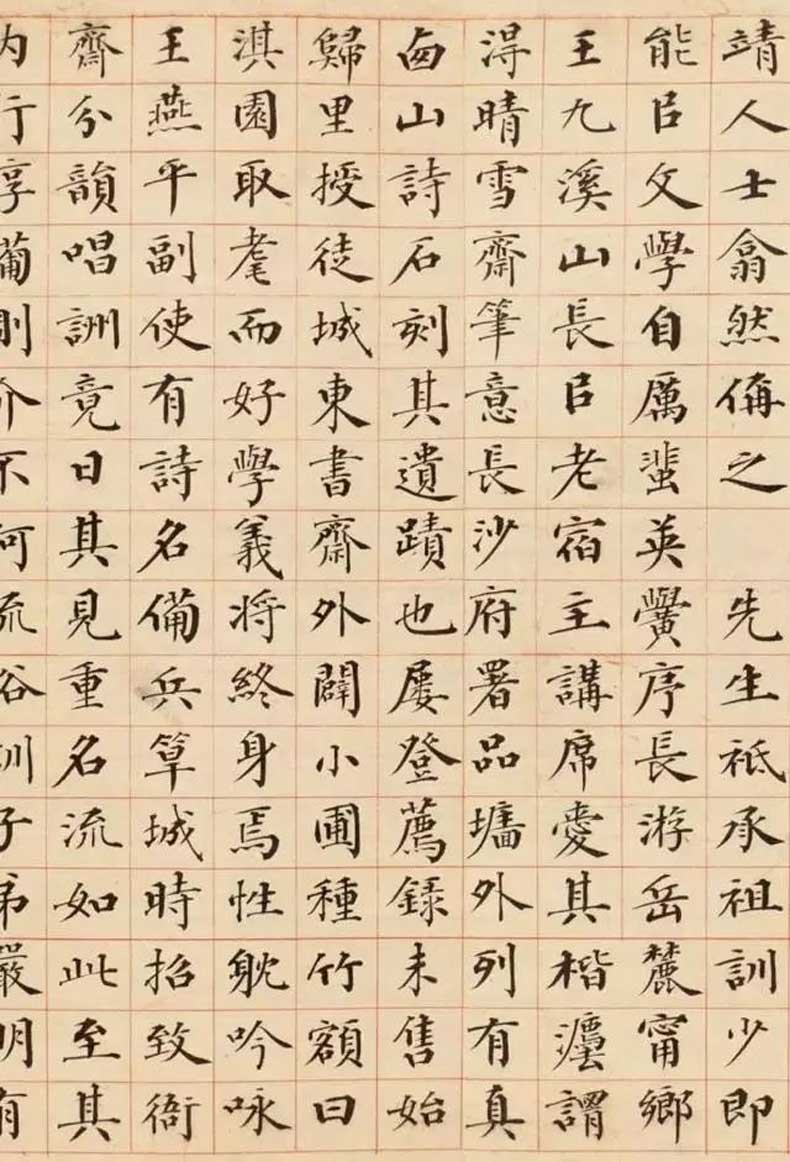 靖人士翕然偁之　先生祗承祖訓少即
能㠯文學自厲蜚英黌序長游岳麓甯鄉
王九溪山長㠯老宿主講席愛其楷灋謂
淂晴雪齋筆意長沙府署品墻外列有真
卥山詩石刻其遺蹟也屡登薦録未售始
歸里授徒城東書齋外闢小圃種竹額曰
淇園取耄而好學義将終身焉性躭吟咏
王燕平副使有詩名備兵筸城時招致衙
齋分韻唱詶竟日其見重名流如此至其
内行介不流訓子弟嚴明有